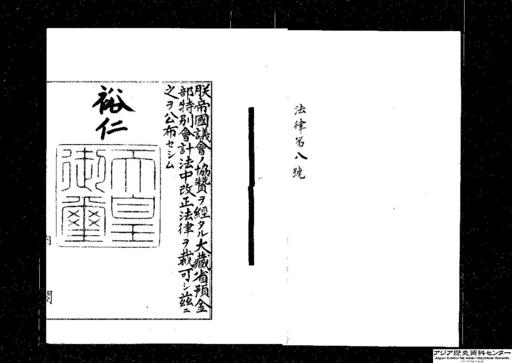 法律第八號
朕帝國議會ノ協贊ヲ經タル大藏省預金
部特別會計法中改正法律ヲ裁可シ茲ニ
之ヲ公布セシム
裕仁
天皇
御璽
内閣
アジア歴史資料センター
Japan Center for Asian Historical Records